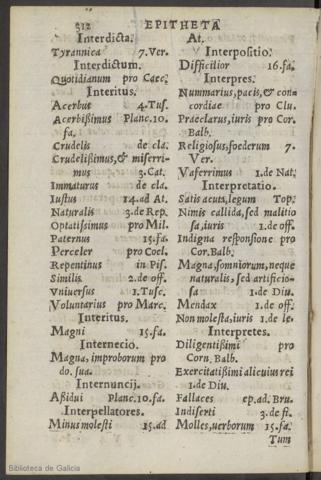 232 EPITHETA
Interdicta.
Tyrannica 7. Ver.
Interdictum.
Quotidianum pro Caec.
Interitus.
Acerbus 4. Tus.
Acerbißimus Planc. 10.
fa.
Crudelis de cla.
Crudelißimus, & miserri-
mus 3. Cat.
Immaturus de cla.
Iustus 14. ad At.
Naturalis 3. de Rep.
Optatißimus pro Mil.
Paternus 15. fa.
Perceler pro Coel.
Repentinus in Pis.
Similis 2. de off.
Vniuersus 1. Tusc.
Voluntarius pro Marc.
Interitus.
Magni 15. fa.
Internecio.
Magna, improborum pro
do. sua.
Internuncij.
Aßidui Planc. 10. fa.
Interpellatores.
Minus molesti 15. ad
At.
Interpositio.
Difficilior 16. fa.
Interpres.
Nummarius, pacis, & con-
cordiae pro Clu.
Praeclarus, iuris pro Cor.
Balb.
Religiosus, foederum 7.
Ver.
Vaferrimus 1. de Nat.
Interpretatio.
Satis acuta, legum Top.
Nimis callida, sed malitio
sa, iuris 1. de off.
Indigna responsione pro
Cor. Balb.
Magna, somniorum, neque
naturalis, sed artificio-
sa 1. de Diu.
Mendax 1. de off.
Non molesta, iuris 1. de le.
Interpretes.
Diligentißimi pro
Corn. Balb.
Exercitatißimi alicuius rei
1. de Diu.
Fallaces ep. ad. Bru.
Indiserti 3. de fi.
Molles, uerborum 15. fa.
Tum
Biblioteca de Galicia